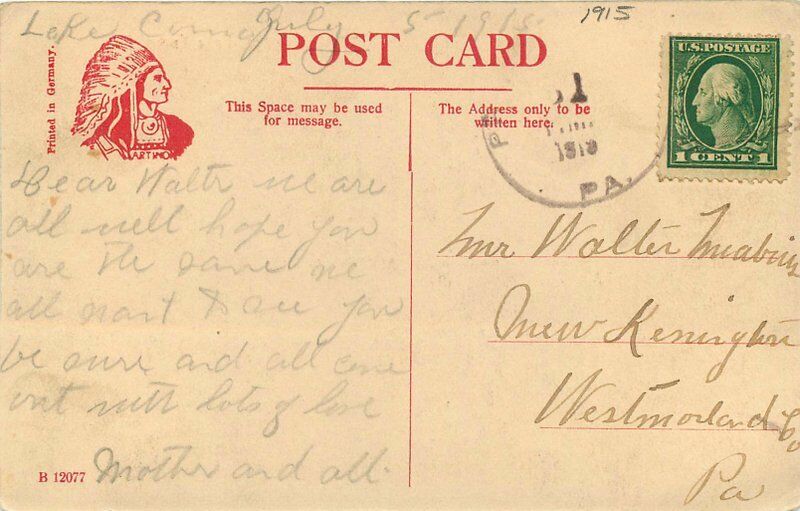 1915
July 5 1915
POST CARD
Printed in Germany.
This Space may be used
for message.
The Address only to be
written here.
U.S. POSTAGE
1 CENT 1
PA.
Dear Walter we are
all well hope you
are the same we
all want to see you
be sure and all come
out with lots of love
Mother and all.
B 12077
Mr Walter
New Kenington
Westmorland Co
Pa